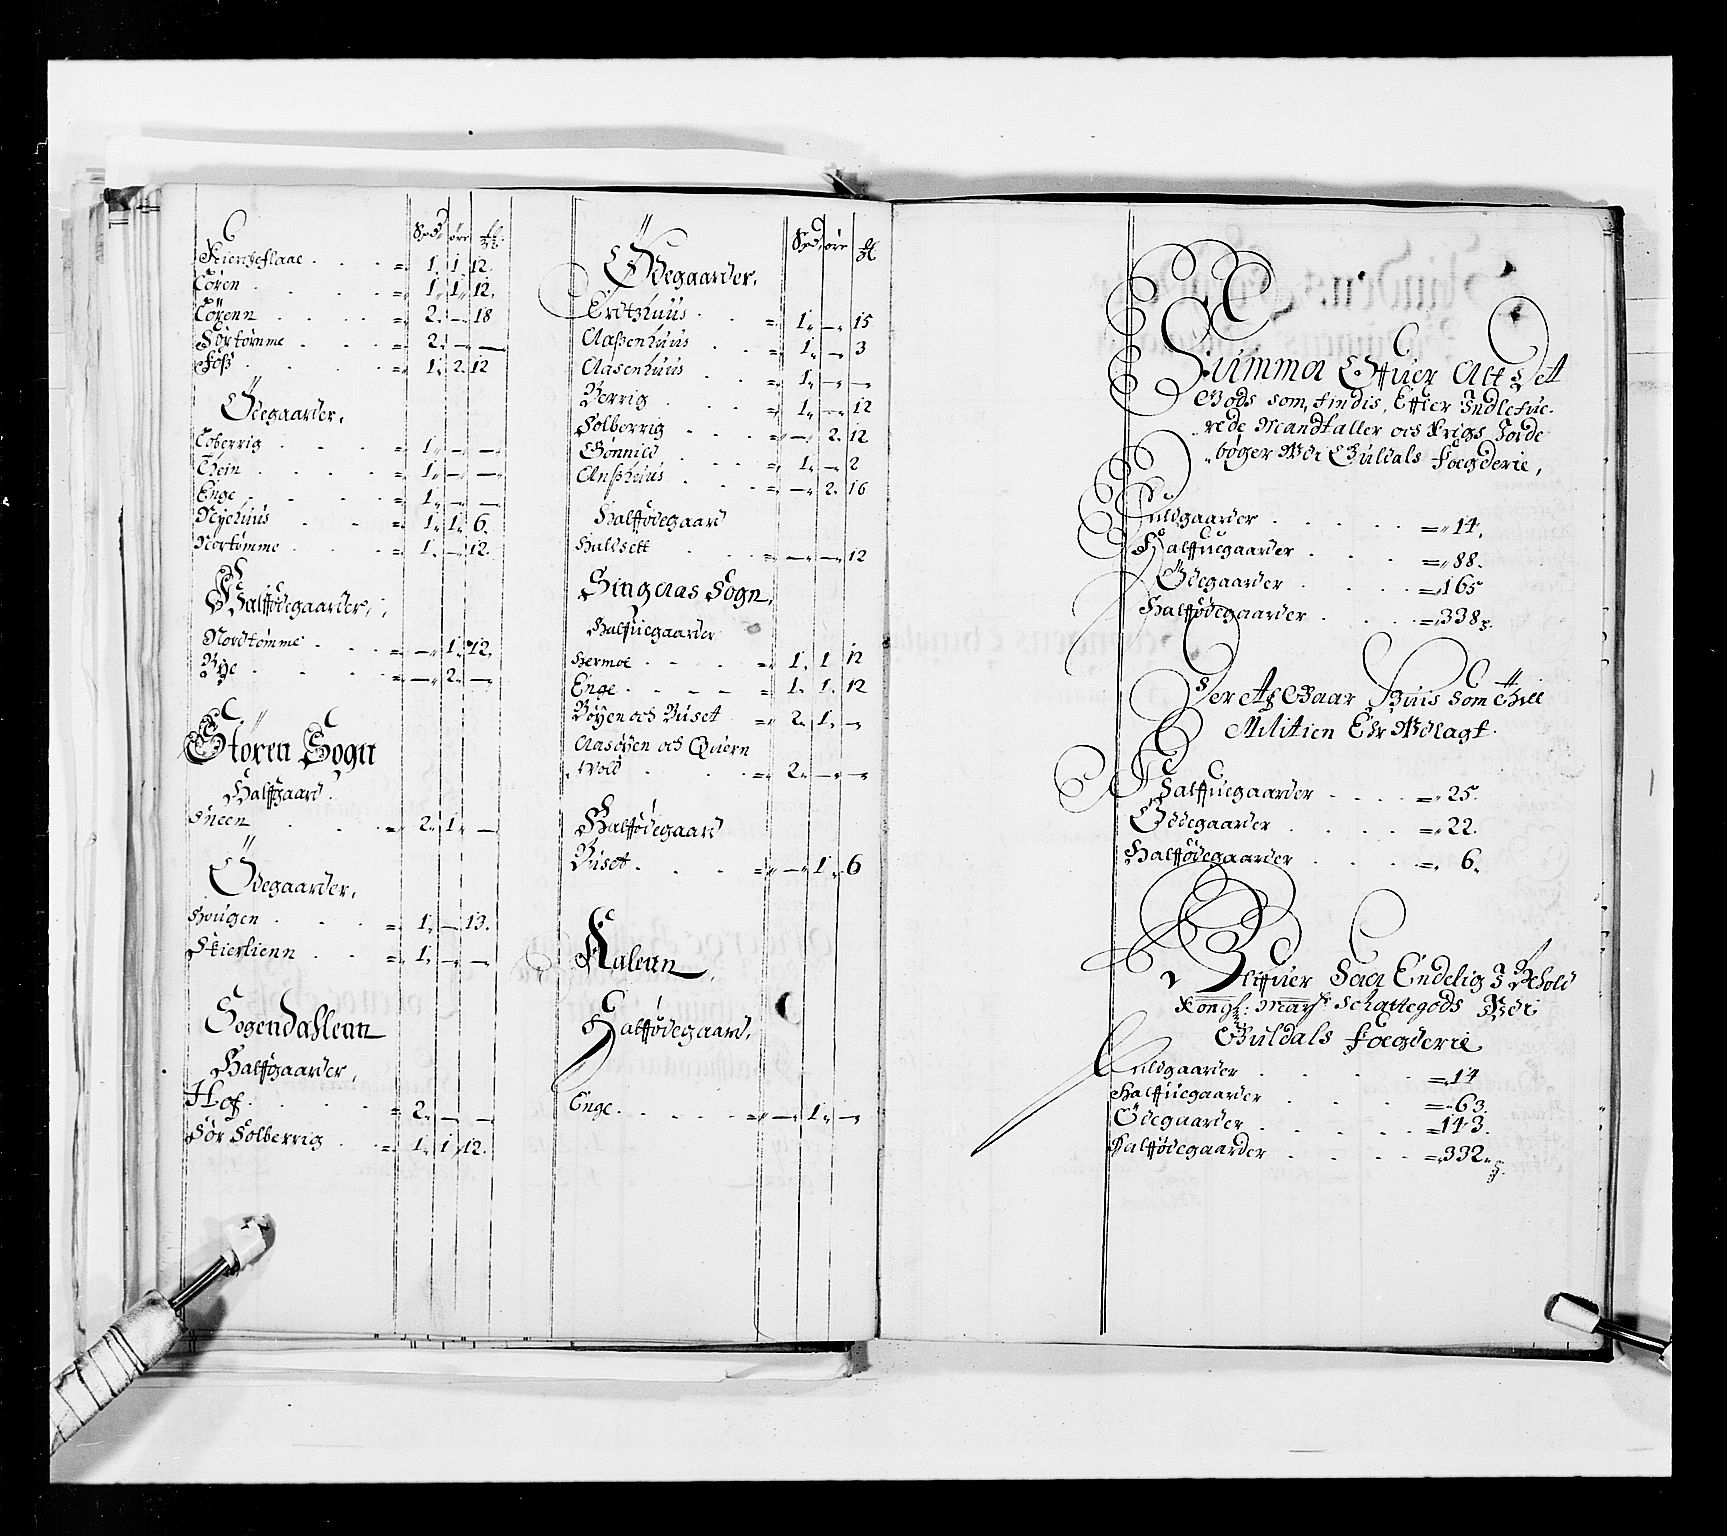 Spd. øre
= 1. 1. 12.
Tøren = 1. 1. 12.
Tørenn = 2. — 18
Sørtømme = 2. — —
Foss = 1. 2. 12
Ödegaarder.
Soberrig = 1. — —
Thein = 1. — —
Enge = 1. — —
Nyehuus = 1. 1. 6.
Nortømme = 1. — 12.
Halffödegaarder.
Nordtømme = — 1. 12.
Bye = — 2. —
Støren Sogn
Halffgaard.
= 2. 1. —
Ödegaarder.
Hougen = 1. — 13.
Skierlienn = 1. — —
Sogendahlenn
Halffgaarder,
Hof = 2. — —
Sør Solberrig = 1. 1. 12.
Spd. øre
Ödegaarder.
= 1. — 15
Aassenhuus = 1. — 3
Aasenhuus = 1. — —
Berrig = 1. — 12
Solberrig = — 2. 12
= 1. — 2
= — 2. 16
Halffödegaard
Haldsett = — — 12
Singsaas Sogn.
Halfuegaarder
Hermoe = 1. 1 12
Enge = 1. 1. 12
Bøyen och Buset = 2. 1. —
Aasøyen och Quern
Wold = 2. — —
Halffödegaard
Buset = — 1. 6
Aalenn.
Halffödegaard.
Enge = — 1. —
Summa Offuer Alt Det
Gods som findis, Effter Indlefue-
rede Mandtaller och Krigs Jorde
bøger Udi Guldals Foegderie,
Fuldgaarder = 14.
Halffuegaarder = 88.
Ödegaarder = 165
Halffödegaarder = 338
Der Af Gaar Huis som Thill
Militien Ehr Udlagt.
Halffuegaarder = 25.
Ödegaarder = 22.
Halffödegaarder = 6.
Bliffuer Saa Endelig I Behold
Kongl: May: Schattegods Udi
Guldals Foegderie
Fuldgaarder = 14
Halffuegaarder = 63.
Ödegaarder = 143.
Halffödegaarder = 332.